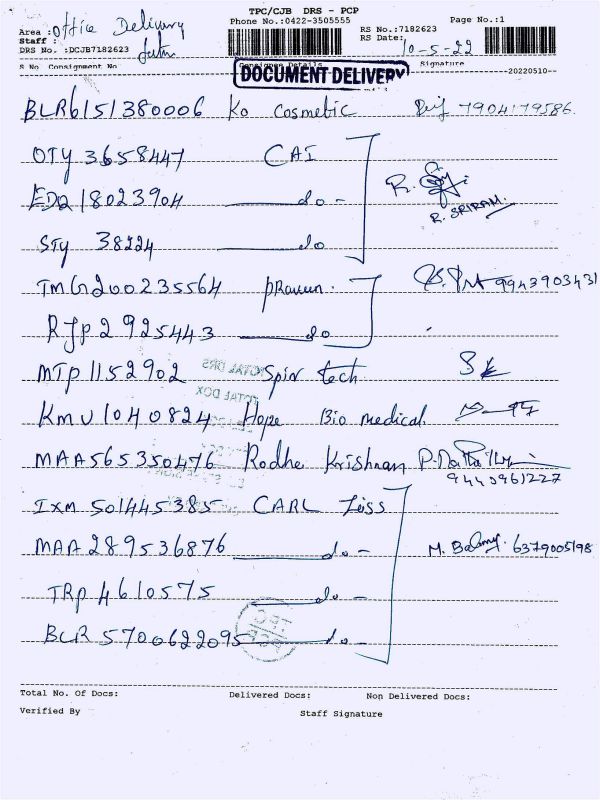 TPC/CJB DRS - PCP
Phone No.:0422-3505555 Page No.:1
Area : Office Delivery RS No.:7182623
Staff : RS Date: 10-5-22
DRS No. :DCJB7182623
S No Consignment No Consignee Details Signature
DOCUMENT DELIVERY --20220510--
BLR6151380006 Ko Cosmetic 7904179586
OTY 3658447 CAI
EDQ 18023904 do - R. SRIRAM
STY 38224 do
TMG200235564 Praveen. 9943903431
RJP2925443 do
MTP1152902 Spin tech
TOTAL DRS
TOTAL DOX
KMU1040824 Hope Bio medical
MAA565350476 Rodhe Krishnan
9440961227
IXM 501445385 CARL Zeiss
MAA 289536876 do - 6379005198
TRP 4610575 do -
BLR 5700622095 do -
TPC
Total No. Of Docs: Delivered Docs: Non Delivered Docs:
Verified By Staff Signature